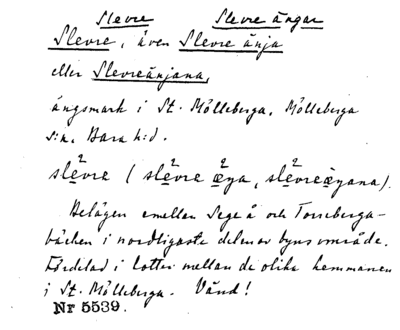 Slevre Slevre ängar
Slevre, även Slevre änja
eller Slevreänjana,
ängsmark i St. Mölleberga, Mölleberga
s:n, Bara h:d.
slevre (slevre æya, slevreæyana).
Belägen emellan Sege å och Torreberga-
bäcken i nordligaste delen av byns område.
Fördelad i lotter mellan de olika hemmanen
i St. Mölleberga. Vänd!
Nr 5539.